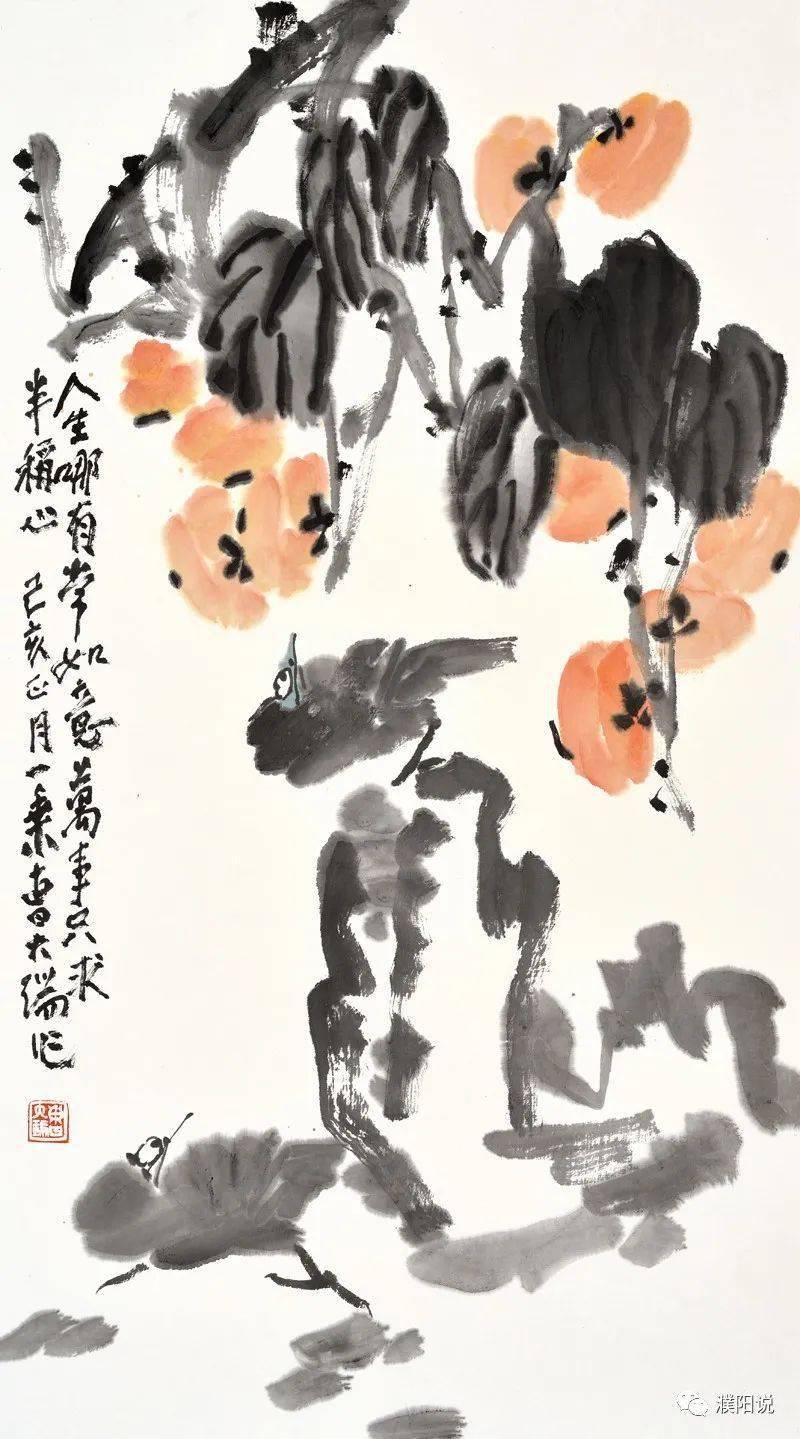 人生哪有常如意萬事只求
半稱心 己亥正月一乘曹大瑞作
濮阳说